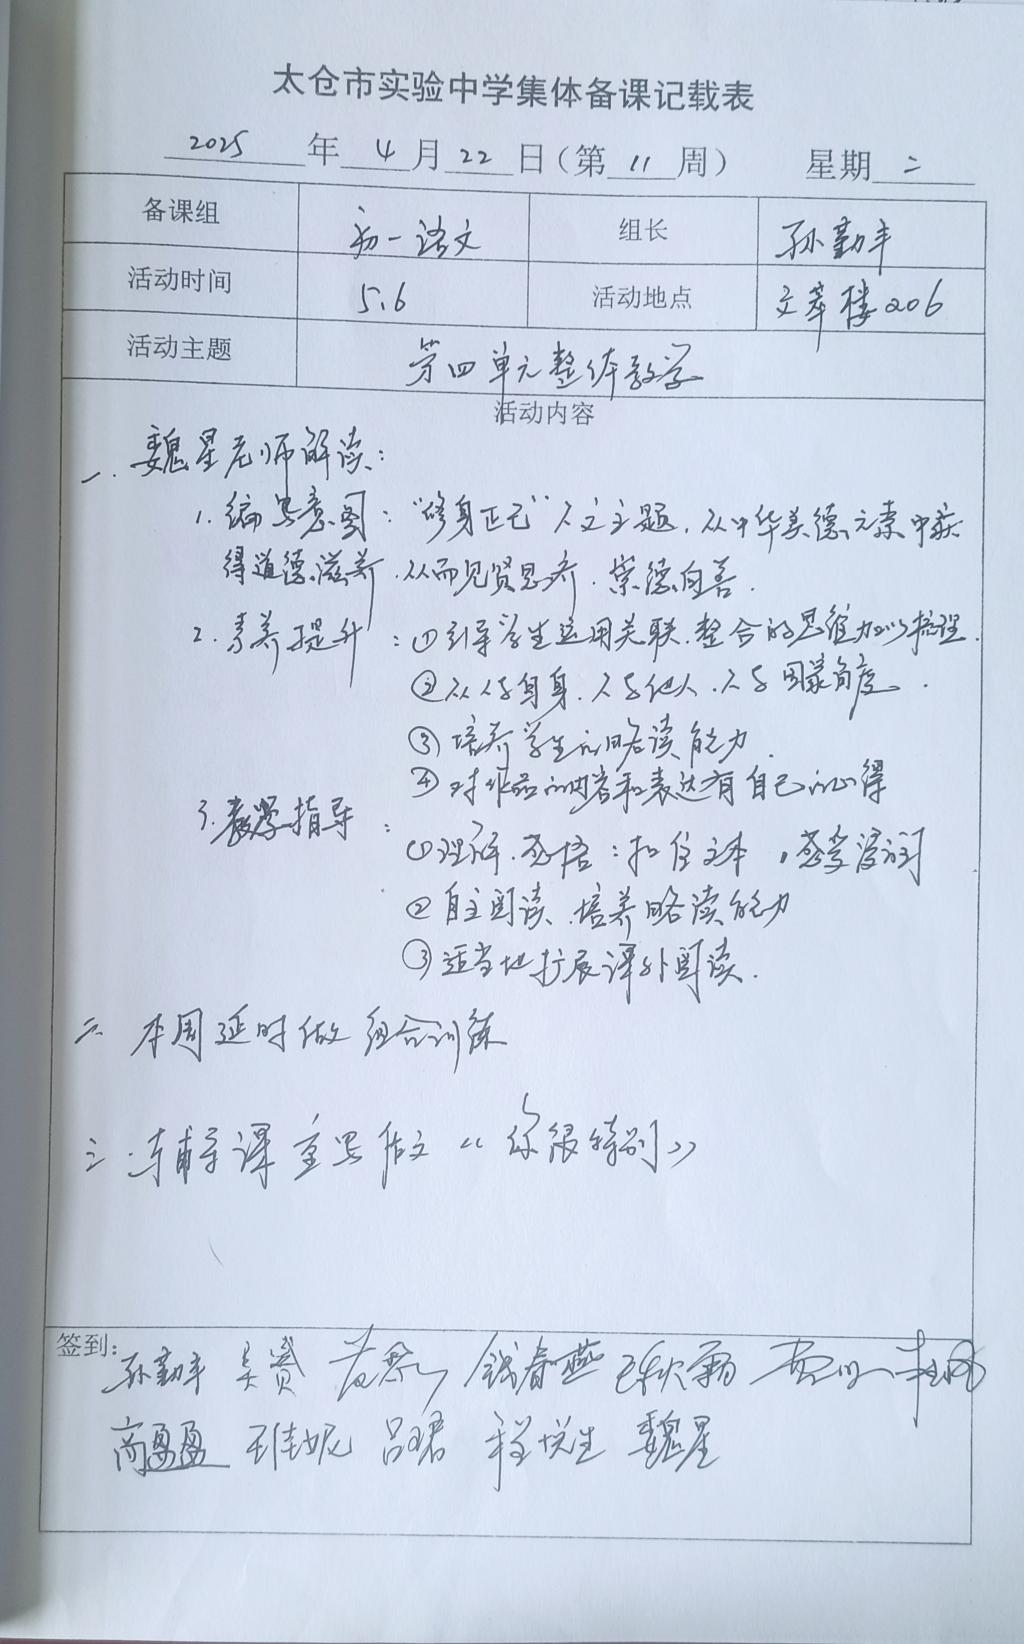 太仓市实验中学集体备课记载表
2025 年 4 月 22 日（第 11 周） 星期 二
备课组 初一语文 组长 孙勤丰
活动时间 5.6 活动地点 文萃楼206
活动主题 第四单元整体教学
活动内容
一. 魏星老师解读：
1. 编写意图：“修身正己”人文主题，从中华美德元素中获
得道德滋养，从而见贤思齐，崇德向善.
2. 素养提升：①引导学生运用关联、整合的思维加以梳理.
②从人与自身、人与他人、人与国家角度.
③培养学生的略读能力.
④对作品的内容和表达有自己的心得
3. 教学指导：
①理解、感悟：扣住文本，
②自主阅读、培养略读能力
③适当地扩展课外阅读.
二. 本周延时做组合训练
三. 辅导课重写作文《你很特别》
签到：孙勤丰 吴赟 钱春燕
商盈盈 王佳妮 吕珺 程悦生 魏星